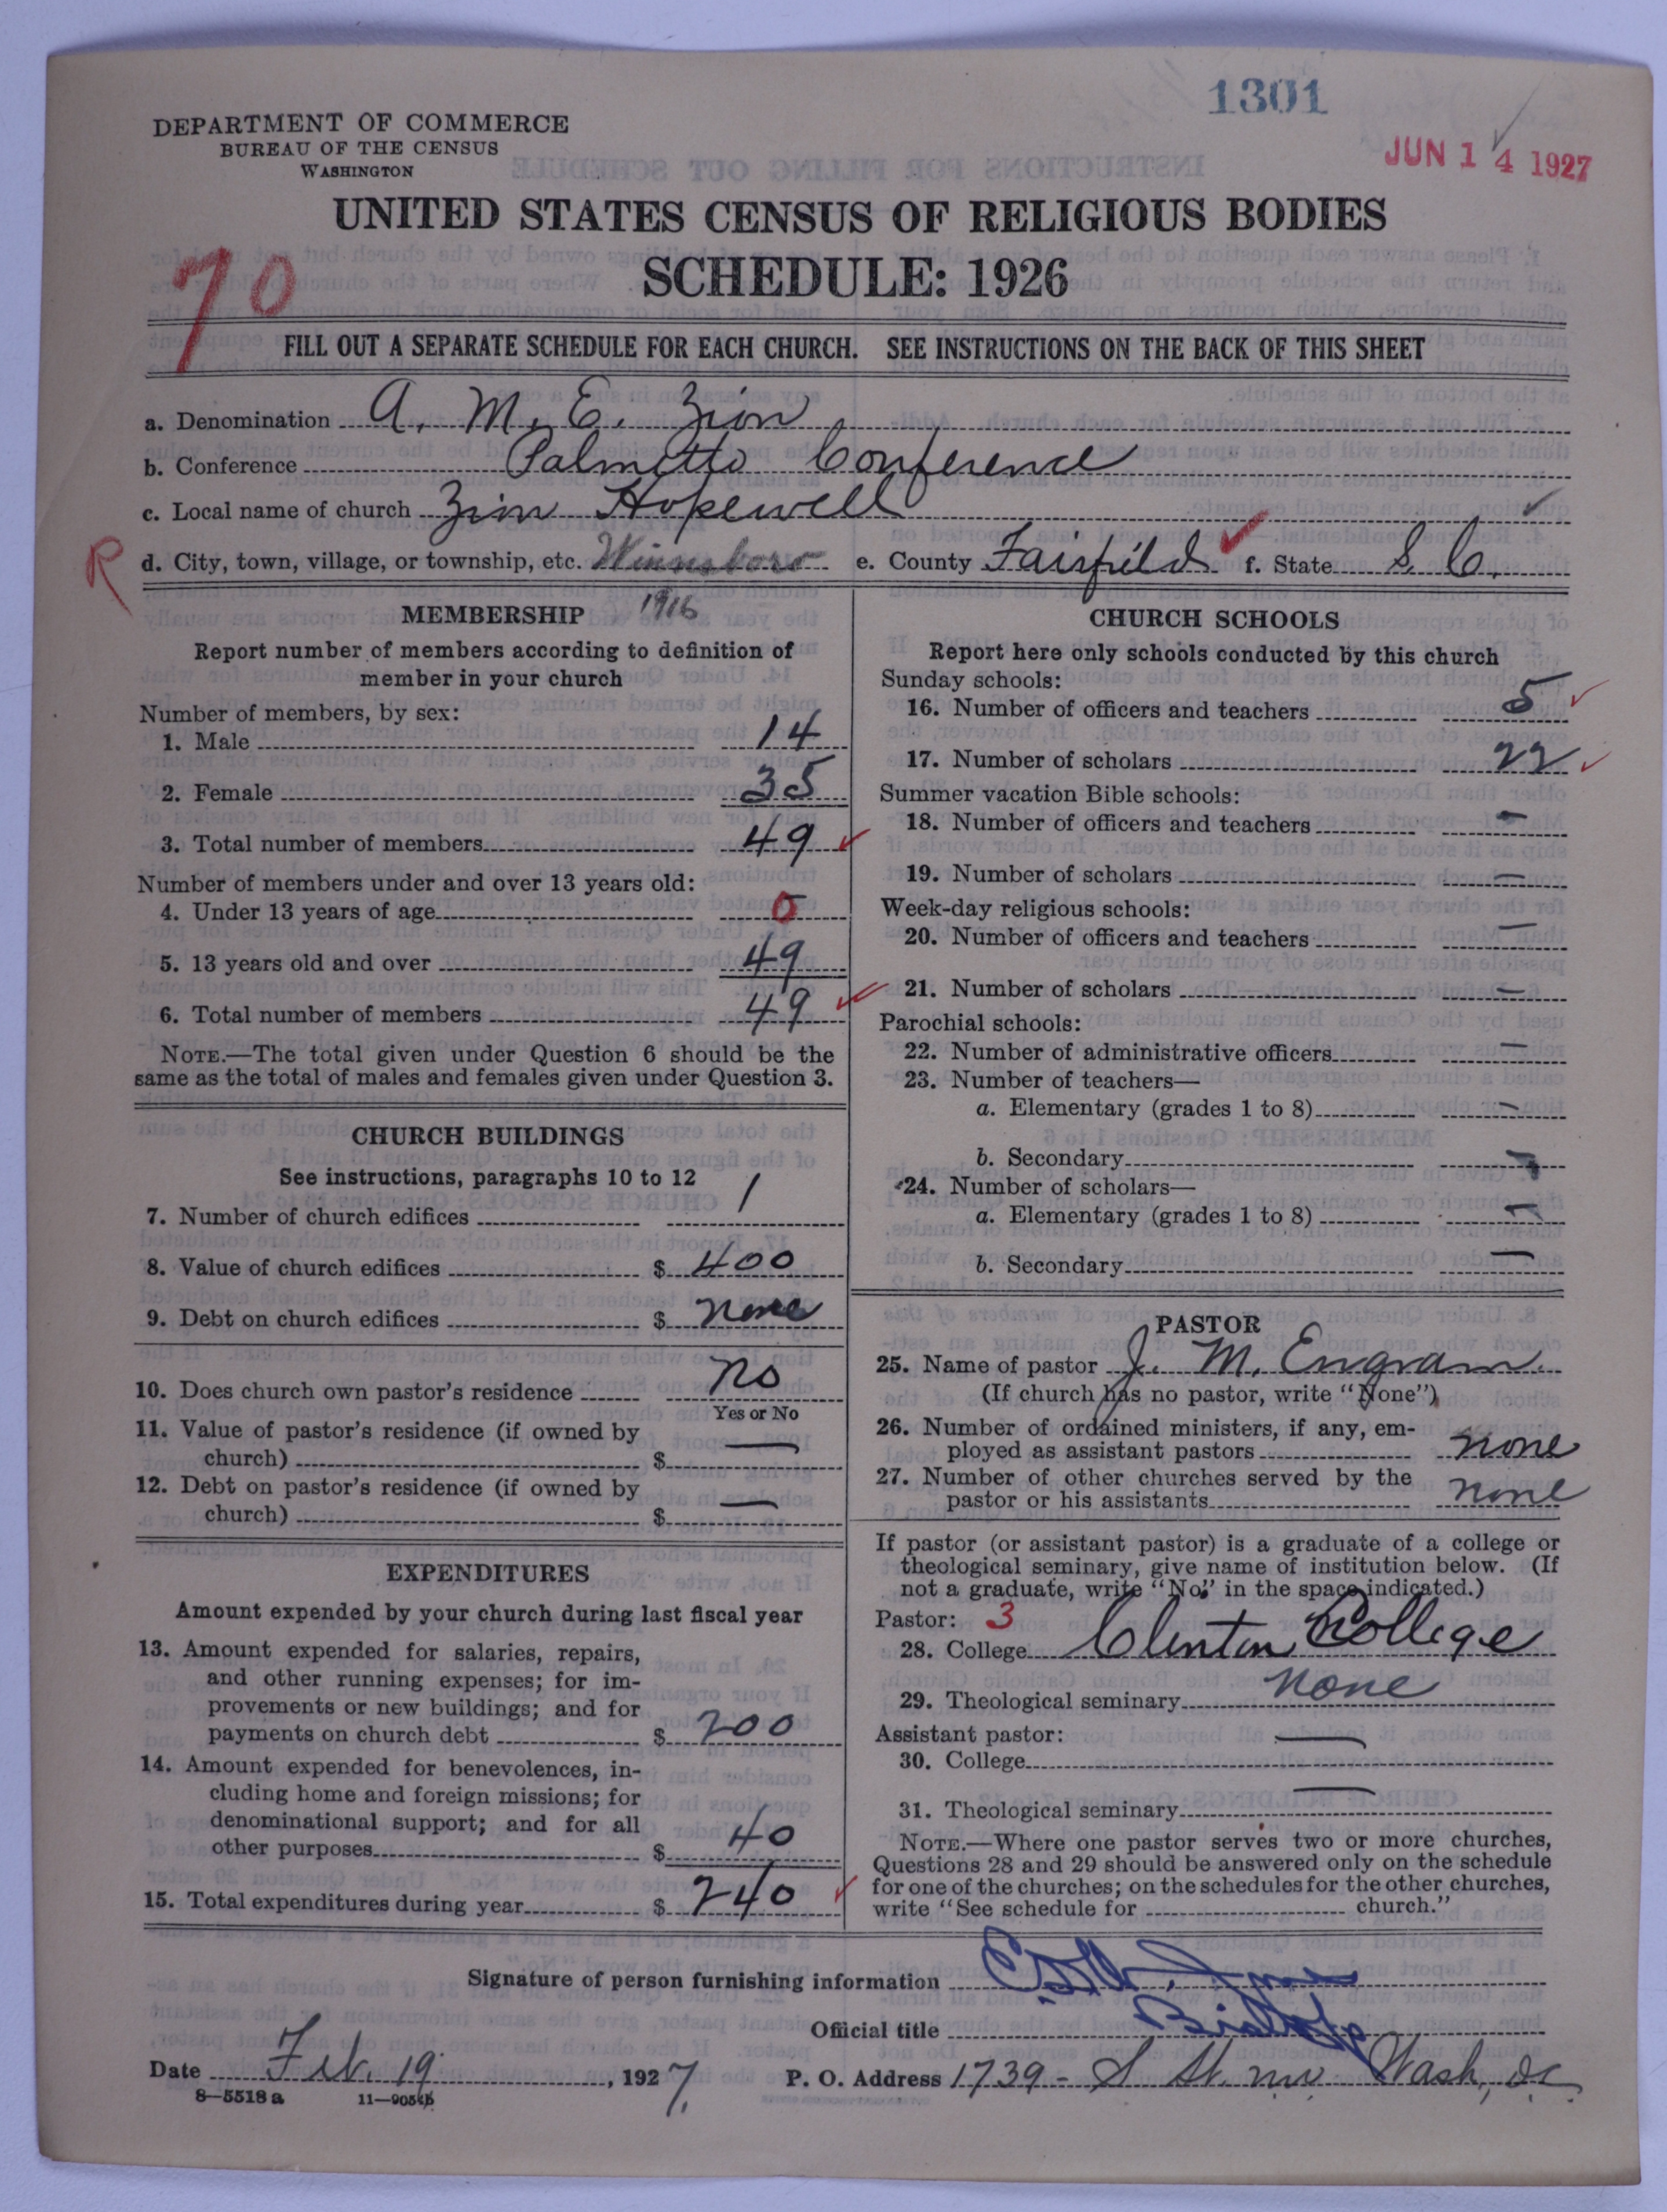 1301
JUN 14 1927
DEPARTMENT OF COMMERCE
BUREAU OF THE CENSUS
WASHINGTON
UNITED STATES CENSUS OF RELIGIOUS BODIES
SCHEDULE: 1926
70
FILL OUT A SEPARATE SCHEDULE FOR EACH CHURCH. SEE INSTRUCTIONS ON THE BACK OF THIS SHEET
a. Denomination A. M. E. Zion
b. Conference Palmetto Conference
c. Local name of church Zion Hopewell
R
d. City, town, village, or township, etc. Winnsboro e. County Fairfield f. State S. C.
MEMBERSHIP 1916
Report number of members according to definition of
member in your church
Number of members, by sex:
1. Male 14
2. Female 35
3. Total number of members 49
Number of members under and over 13 years old:
4. Under 13 years of age 0
5. 13 years old and over 49
6. Total number of members 49
NOTE.—The total given under Question 6 should be the
same as the total of males and females given under Question 3.
CHURCH BUILDINGS
See instructions, paragraphs 10 to 12
7. Number of church edifices 1
8. Value of church edifices $ 400
9. Debt on church edifices $ none
10. Does church own pastor's residence no
Yes or No
11. Value of pastor's residence (if owned by
church) $ —
12. Debt on pastor's residence (if owned by
church) $ —
EXPENDITURES
Amount expended by your church during last fiscal year
13. Amount expended for salaries, repairs,
and other running expenses; for im-
provements or new buildings; and for
payments on church debt $ 200
14. Amount expended for benevolences, in-
cluding home and foreign missions; for
denominational support; and for all
other purposes $ 40
15. Total expenditures during year $ 240
CHURCH SCHOOLS
Report here only schools conducted by this church
Sunday schools:
16. Number of officers and teachers 5
17. Number of scholars 22
Summer vacation Bible schools:
18. Number of officers and teachers —
19. Number of scholars —
Week-day religious schools:
20. Number of officers and teachers —
21. Number of scholars —
Parochial schools:
22. Number of administrative officers —
23. Number of teachers—
a. Elementary (grades 1 to 8) —
b. Secondary —
24. Number of scholars—
a. Elementary (grades 1 to 8) —
b. Secondary —
PASTOR
25. Name of pastor J. M. Engram
(If church has no pastor, write "None")
26. Number of ordained ministers, if any, em-
ployed as assistant pastors none
27. Number of other churches served by the
pastor or his assistants none
If pastor (or assistant pastor) is a graduate of a college or
theological seminary, give name of institution below. (If
not a graduate, write "No" in the space indicated.)
Pastor: 3
28. College Clinton College
29. Theological seminary none
Assistant pastor:
30. College —
31. Theological seminary —
NOTE.—Where one pastor serves two or more churches,
Questions 28 and 29 should be answered only on the schedule
for one of the churches; on the schedules for the other churches,
write "See schedule for church."
Signature of person furnishing information
Official title Bishop
Date Feb. 19, 1927. P. O. Address 1739 - S St. nw Wash, DC
8—5518 a